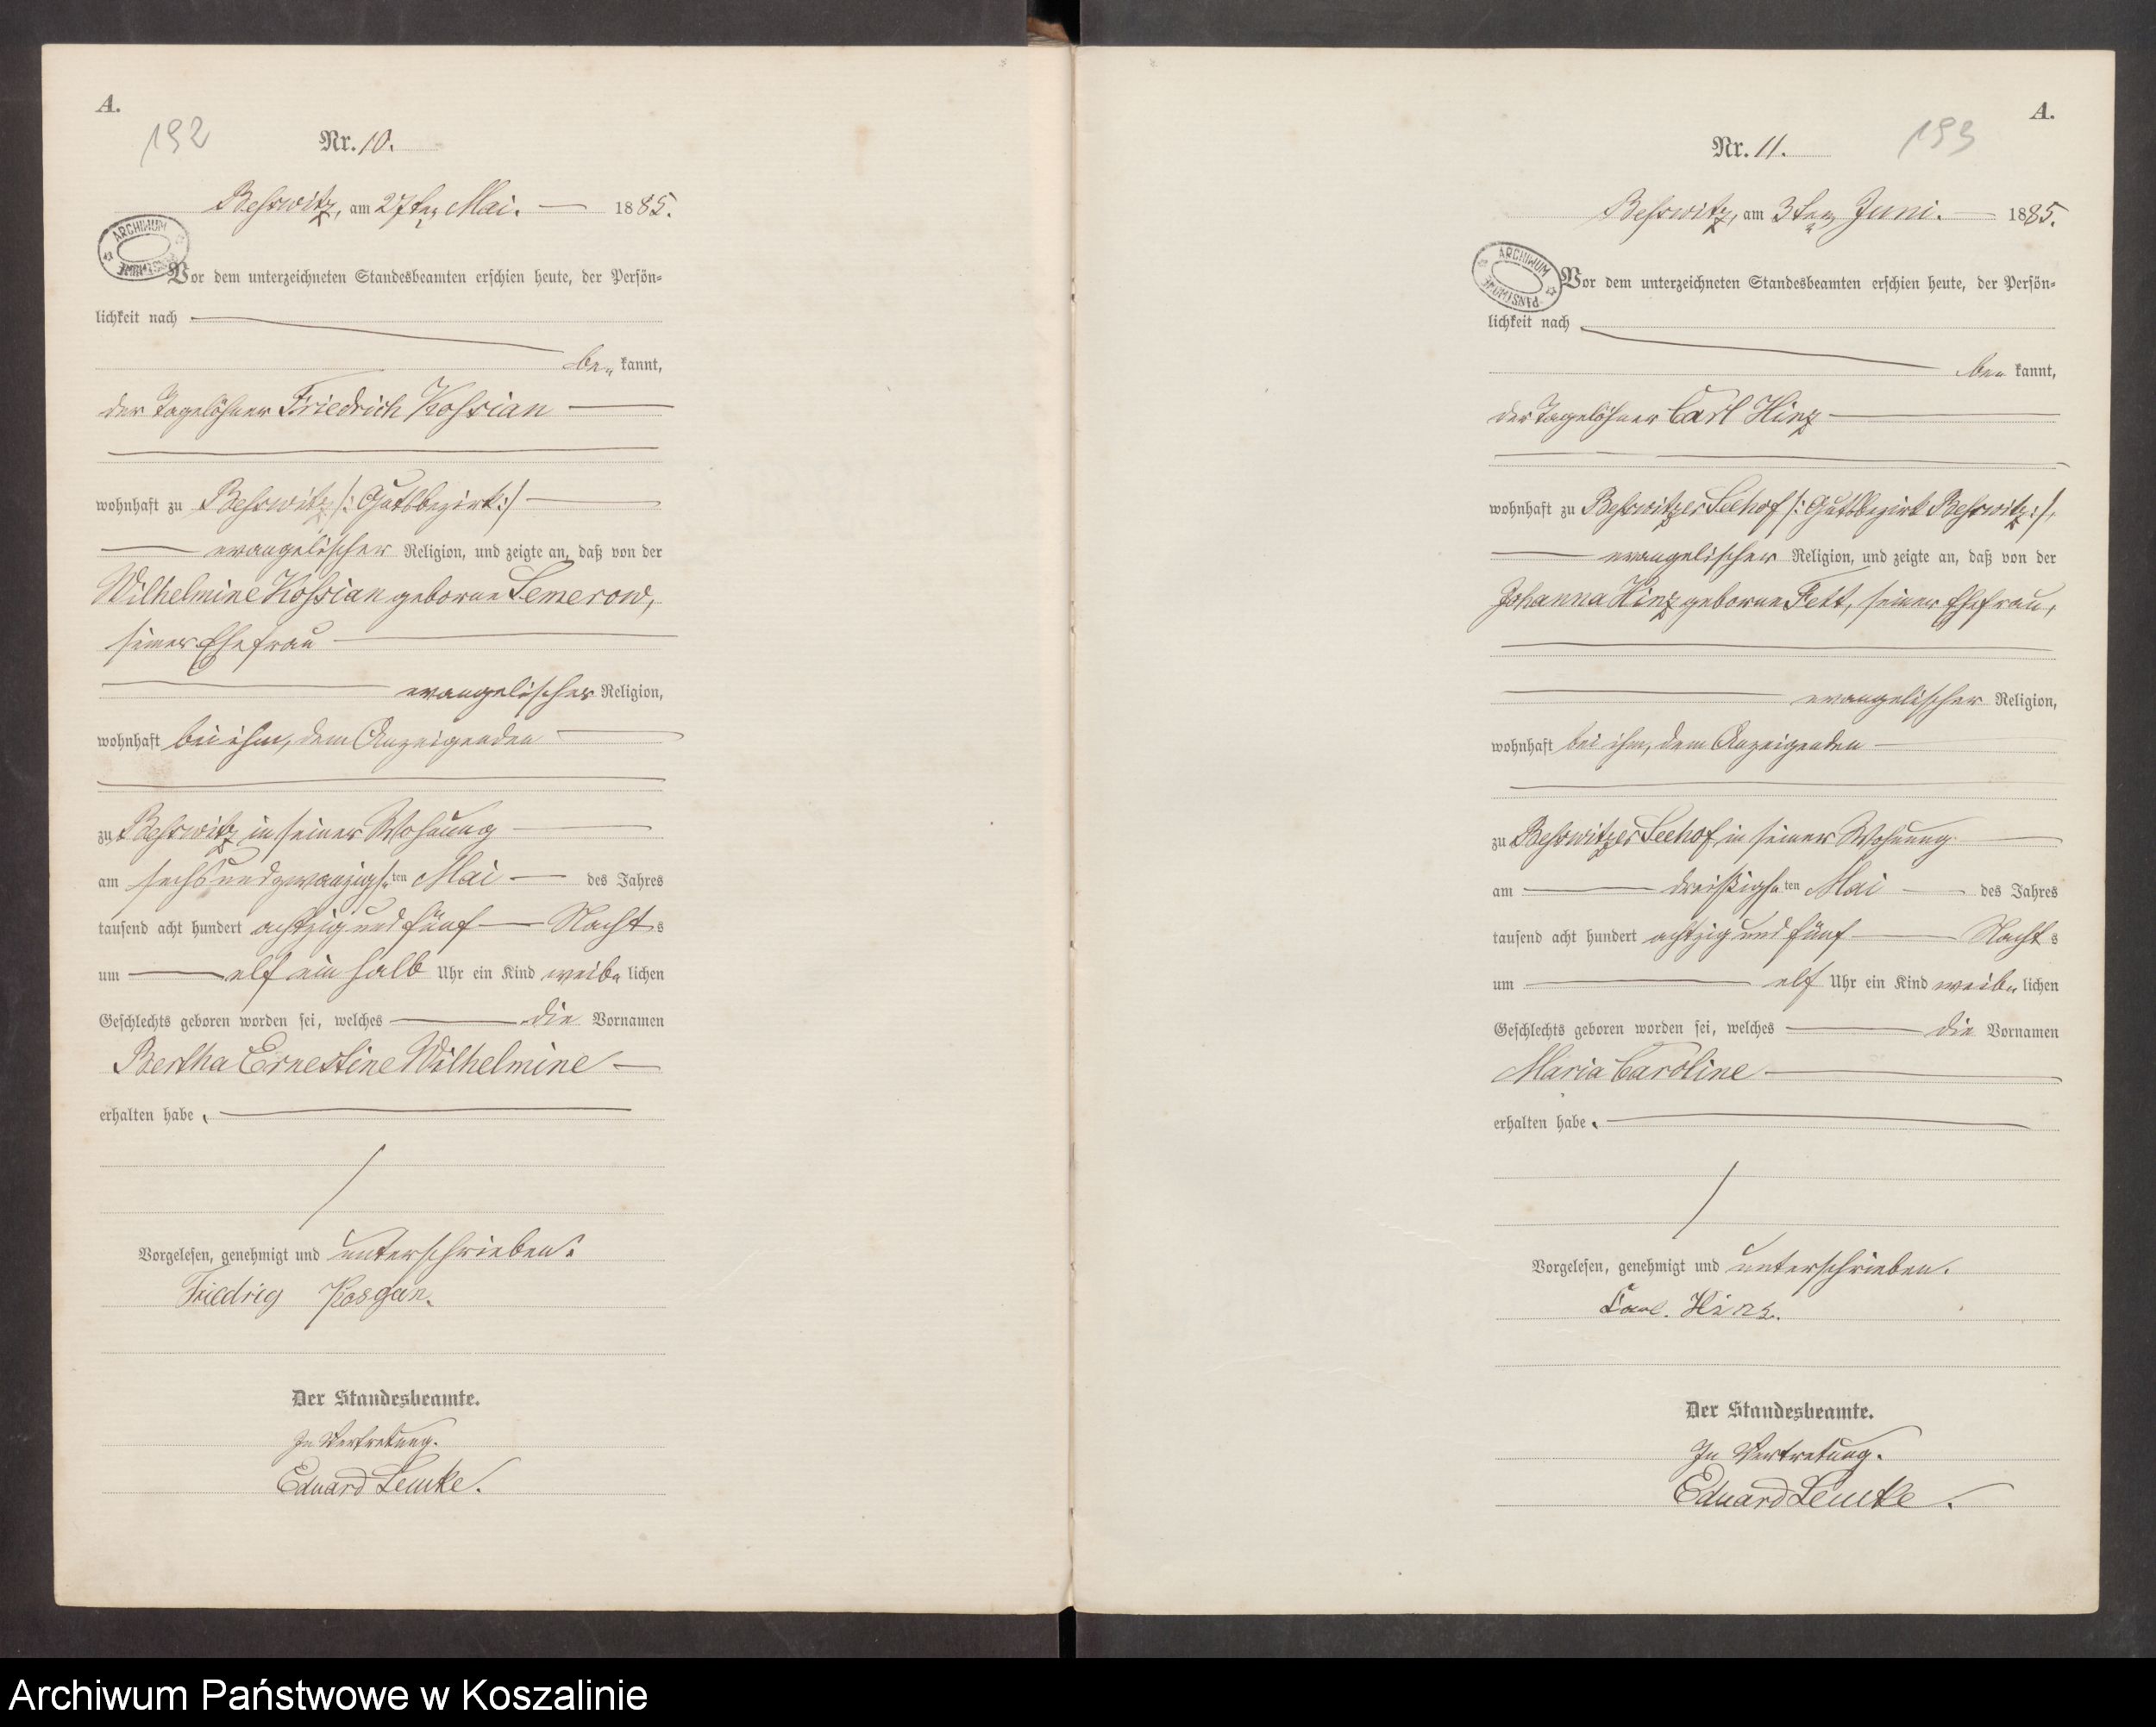 A.
192
Nr. 10.
Beßwitz, am 27ten Mai. 1885.
ARCHIWUM
Vor dem unterzeichneten Standesbeamten erschien heute, der Persön=
lichkeit nach
be kannt,
der Tagelöhner Friedrich Koßian
wohnhaft zu Beßwitz /: Gutsbezirk :/
evangelischer Religion, und zeigte an, daß von der
Wilhelmine Koßian geborne Semerow,
seiner Ehefrau
evangelischer Religion,
wohnhaft bei ihm, dem Anzeigenden
zu Beßwitz in seiner Wohnung
am sechsundzwanzigsten Mai des Jahres
tausend acht hundert achtzig und fünf Nachts
um elf ein halb Uhr ein Kind weiblichen
Geschlechts geboren worden sei, welches die Vornamen
Bertha Ernestine Wilhelmine
erhalten habe.
Vorgelesen, genehmigt und unterschrieben.
Friedrig Kosgan.
Der Standesbeamte.
In Vertretung.
Eduard Lemke.
A.
193
Nr. 11.
Beßwitz, am 3ten Juni. 1885.
ARCHIWUM PAŃSTWOWE
Vor dem unterzeichneten Standesbeamten erschien heute, der Persön=
lichkeit nach
be kannt,
der Tagelöhner Carl Hinz
wohnhaft zu Beßwitzer Seehof /: Gutsbezirk Beßwitz :/,
evangelischer Religion, und zeigte an, daß von der
Johanna Hinz geborne Fett, seiner Ehefrau,
evangelischer Religion,
wohnhaft bei ihm, dem Anzeigenden
zu Beßwitzer Seehof in seiner Wohnung
am dreißigsten Mai des Jahres
tausend acht hundert achtzig und fünf Nachts
um elf Uhr ein Kind weiblichen
Geschlechts geboren worden sei, welches die Vornamen
Maria Caroline
erhalten habe.
Vorgelesen, genehmigt und unterschrieben.
Carl. Hinz.
Der Standesbeamte.
In Vertretung.
Eduard Lemke.
Archiwum Państwowe w Koszalinie